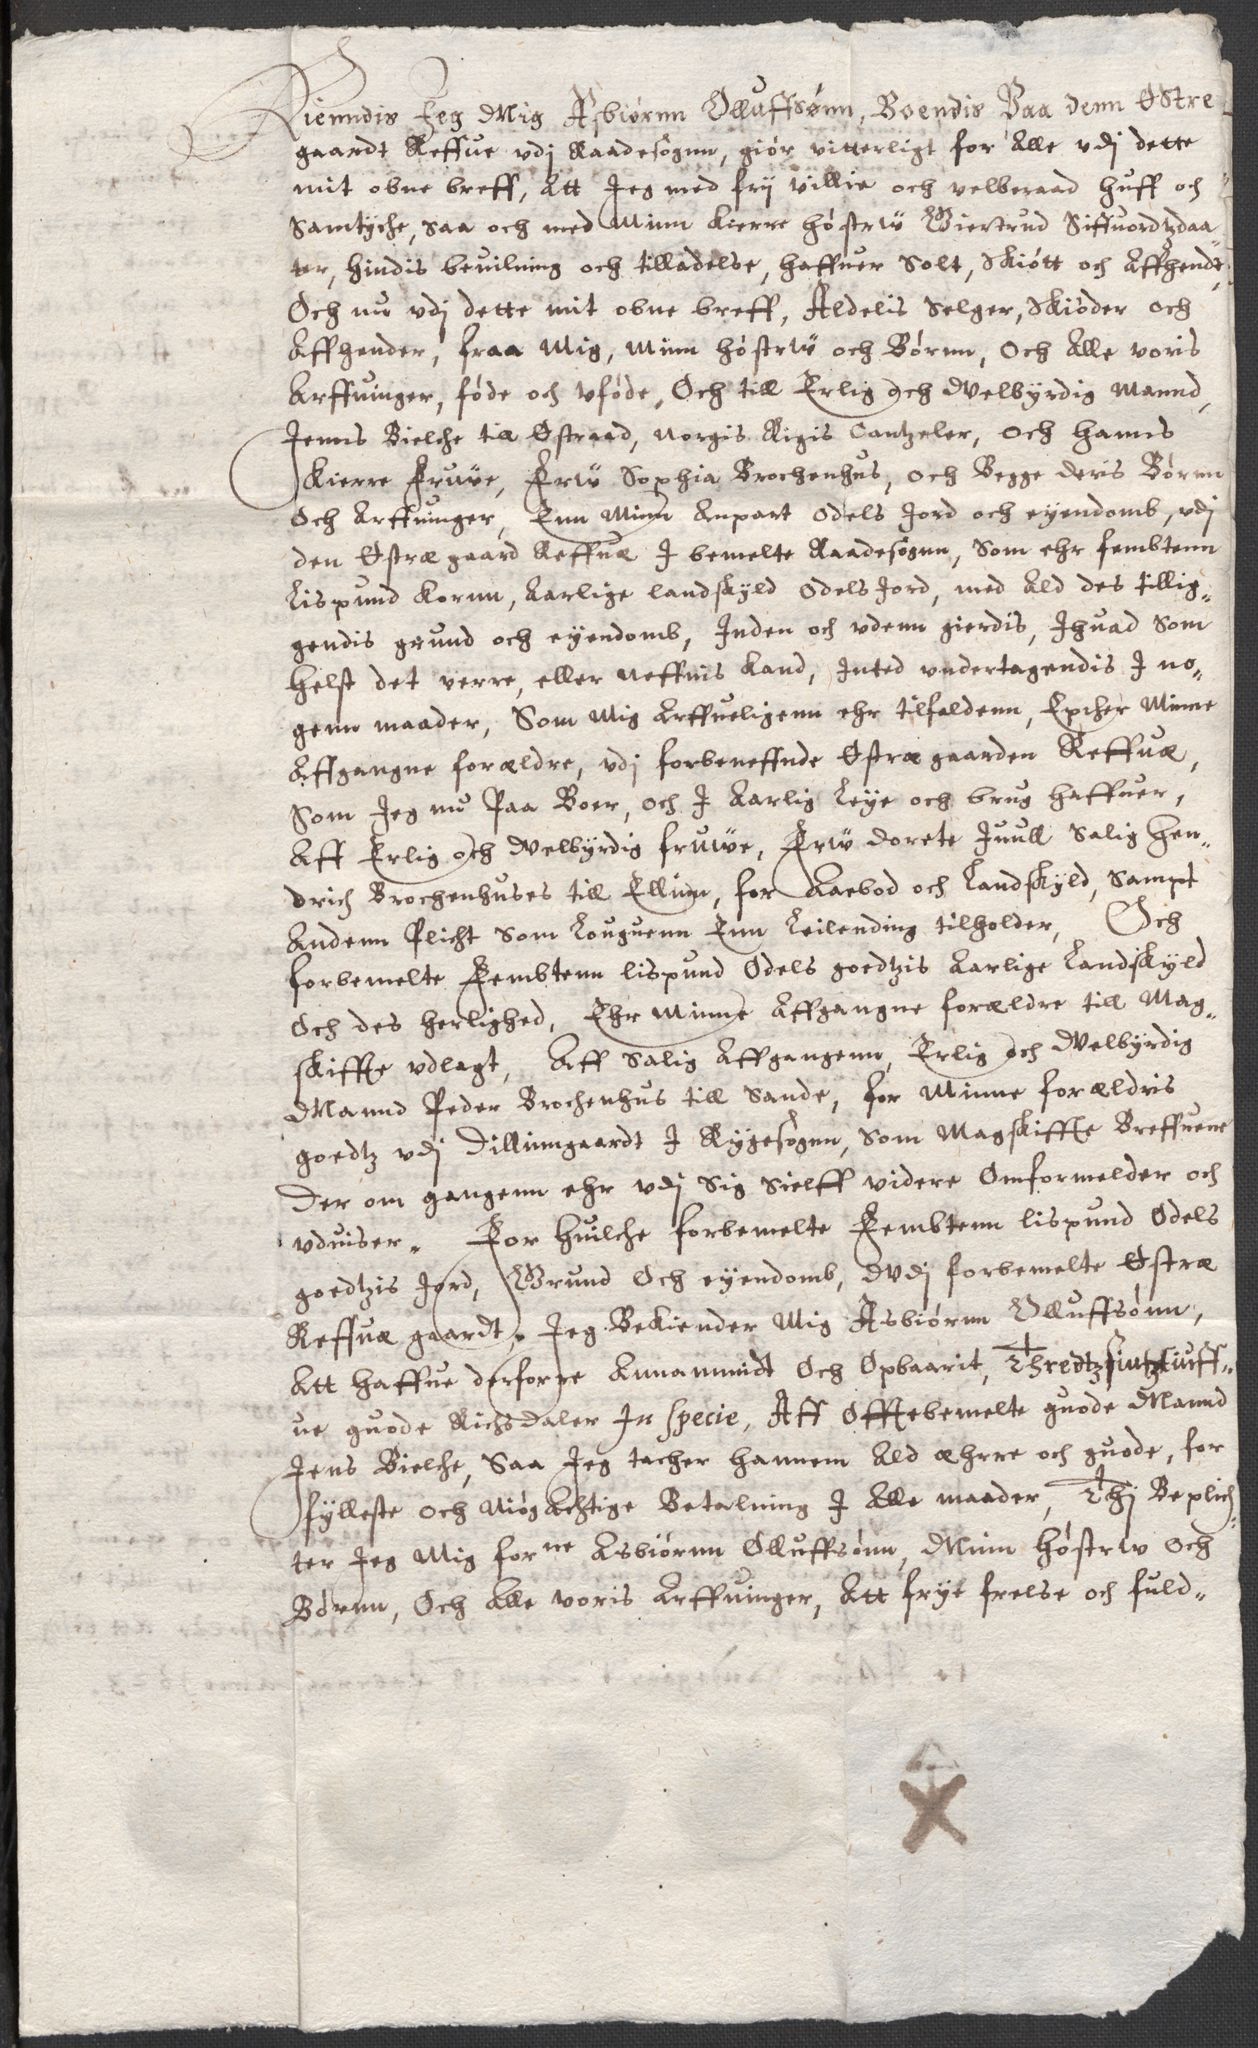 Kiendis Jeg Mig Asbiørnn Olluffsønn, Boendis Paa denn Østre
gaardt Reffue vdj Raadesógnn, giór vitterligt for Alle vdj dette
mit obne breff, Att Jeg med frij villie och velberaad huff och
Samtyche, saa och med Minn Kierre hóstrw Giertrud Siffuordtzdaa
ter, hindis beuilning och tilladelse, haffuer Solt, Skiótt och Affhendt,
Och nu vdj dette mit obne breff, Aldelis Selger, Skióder och
Affhender, fraa Mig, Minn hóstrw och Bórnn, Och Alle voris
Arffuinger, fóde och vfóde, Och till Erlig och Welbyrdig Mannd,
Jenns Bielche till Østraad, Norgis Rigis Cantzeler, och hanns
Kierre Fruwe, Frw Sophia Brochenhus, och Begge deris Bórnn
Och Arffuinger, Enn Minn Anpart Odels Jord och eyendomb, vdj
den Østræ gaard Reffuæ I bemelte Raadesógnn, Som ehr fembtenn
Lispund Kornn, Aarlige landskyld Odels Jord, med Ald des tillig„
gendis grund och eyendomb, Inden och vdenn gierdis, Ihuad Som
helst det verre, eller Neffnis kand, Inted vndertagendis I no„
genn maader, Som Mig Arffueligenn ehr tilfaldenn, Epther Minne
Affgangne forældre, vdj forbeneffnde Østræ gaarden Reffuæ,
Som Jeg nu Paa Boer, och I Aarlig Leye och brug haffuer,
Aff Erlig och Welbyrdig fruwe, Frw Dorete Juull Salig Hen„
drich Brochenhuses till Ellinn, for Aaebod och Landskyld, Sampt
Andenn Plicht Som Louguenn Enn Leilending tilholder, Och
forbemelte Fembtenn lispund Odels goedtzis Aarlige Landskyld
Och des herlighed, Ehr Minne Affgangne forældre till Mag„
skiffte vdlagt, Aff Salig Affgangenn, Erlig och Welbyrdig
Mannd Peder Brochenhus till Sande, for Minne forældris
goedtz vdj Dillinngaardt I Rygesógnn, Som Magskiffte Breffuene
Der om gangenn ehr vdj Sig Sielff videre Omformelder och
vduiser„ For huilche forbemelte Fembtenn lispund Odels
goedtzis Jord, Grund Och eyendomb, Wdj forbemelte Østræ
Reffuæ gaardt, Jeg Bekiender Mig Asbiórnn Olluffsónn,
Att haffue derforre Annammidt Och Opbaarit, Thredtzsintztiuff„
ue guode Richsdaler In specie, Aff Offtebemelte guode Mannd
Jens Bielche, Saa Jeg tacher hannem Ald æhrre och guode, for
fylleste och Nógachtige Betalning I Alle maader, Thj Beplich„
ter Jeg Mig forne Asbiórnn Olluffsónn, Minn hóstrw och
Bórnn, Och Alle voris Arffuinger, Att frye frelse och fuld„